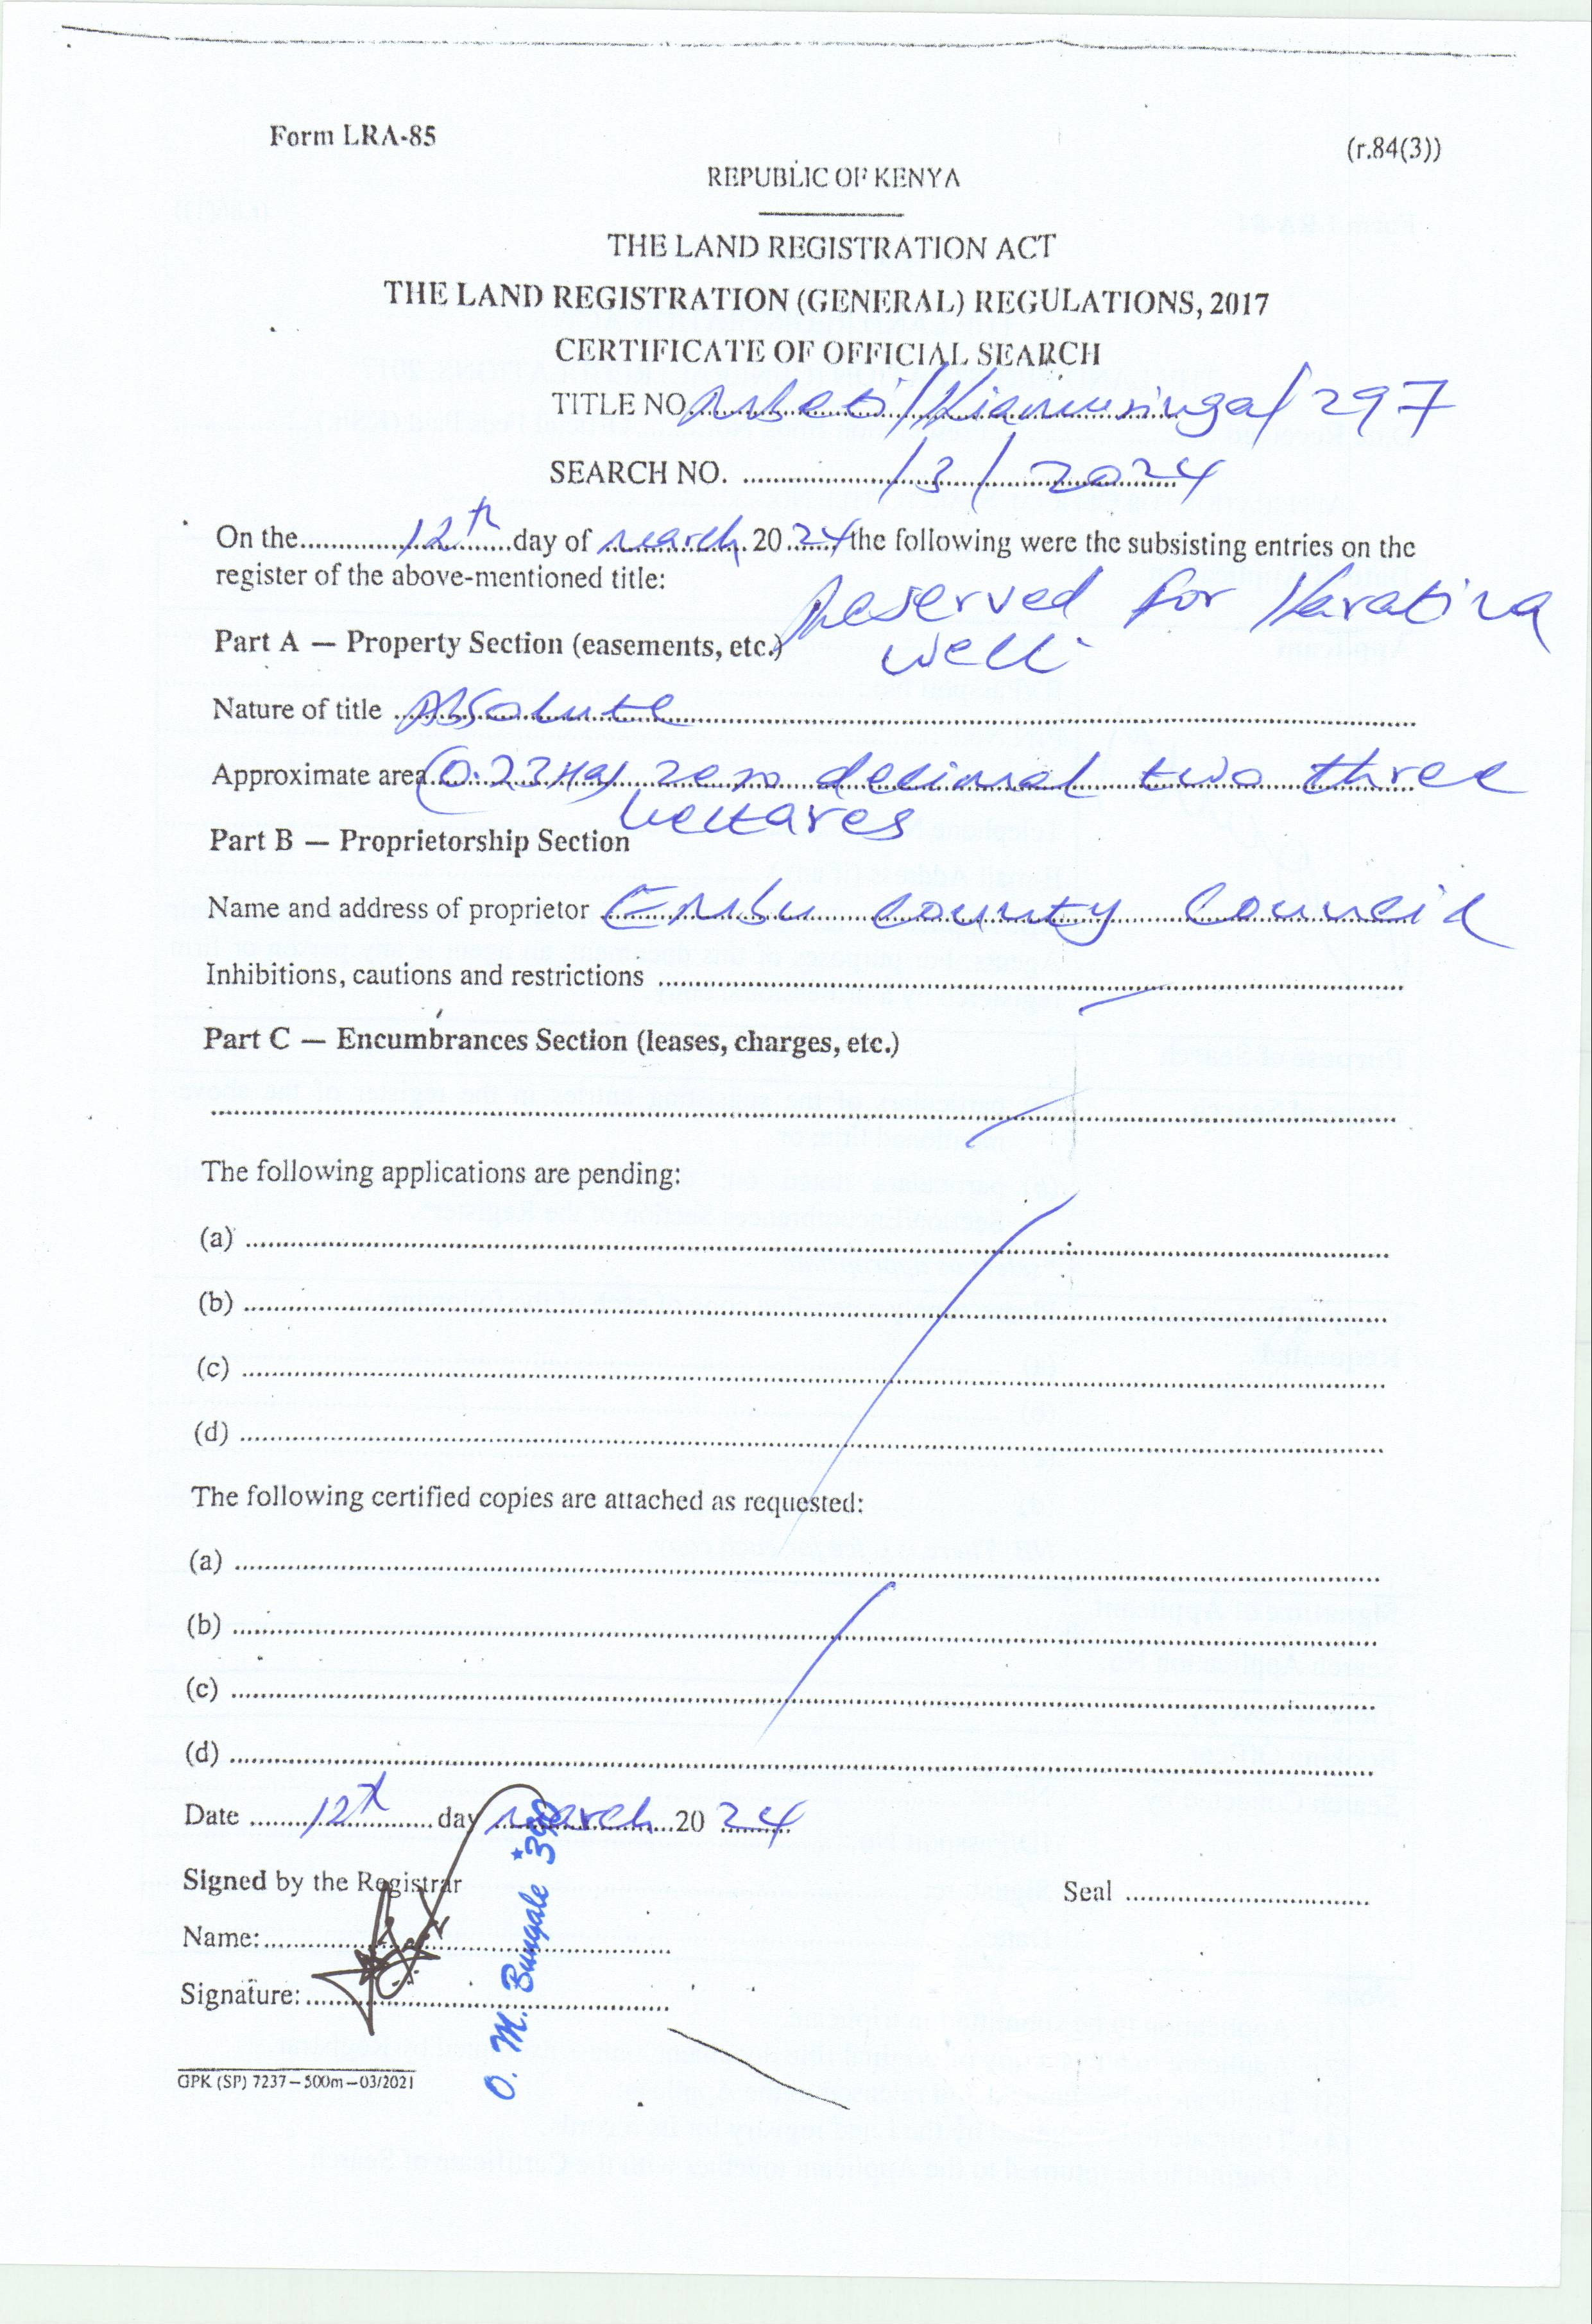 Form LRA-85
(r.84(3))
REPUBLIC OF KENYA
THE LAND REGISTRATION ACT
THE LAND REGISTRATION (GENERAL) REGULATIONS, 2017
CERTIFICATE OF OFFICIAL SEARCH
TITLE NO. Mbeti/Kiamuringa/297
SEARCH NO. ........../3/2024
On the 12th day of march 20 24 the following were the subsisting entries on the
register of the above-mentioned title:
Part A — Property Section (easements, etc.) Reserved for Karatina
well
Nature of title Absolute
Approximate area (0.23Ha) zero decimal two three
hectares
Part B — Proprietorship Section
Name and address of proprietor Embu county council
Inhibitions, cautions and restrictions ..........
Part C — Encumbrances Section (leases, charges, etc.)
The following applications are pending:
(a) ..........
(b) ..........
(c) ..........
(d) ..........
The following certified copies are attached as requested:
(a) ..........
(b) ..........
(c) ..........
(d) ..........
Date 12th day march 20 24
Signed by the Registrar
Seal ..........
Name: ..........
Signature: ..........
O. M. Bungale *390
GPK (SP) 7237—500m—03/2021